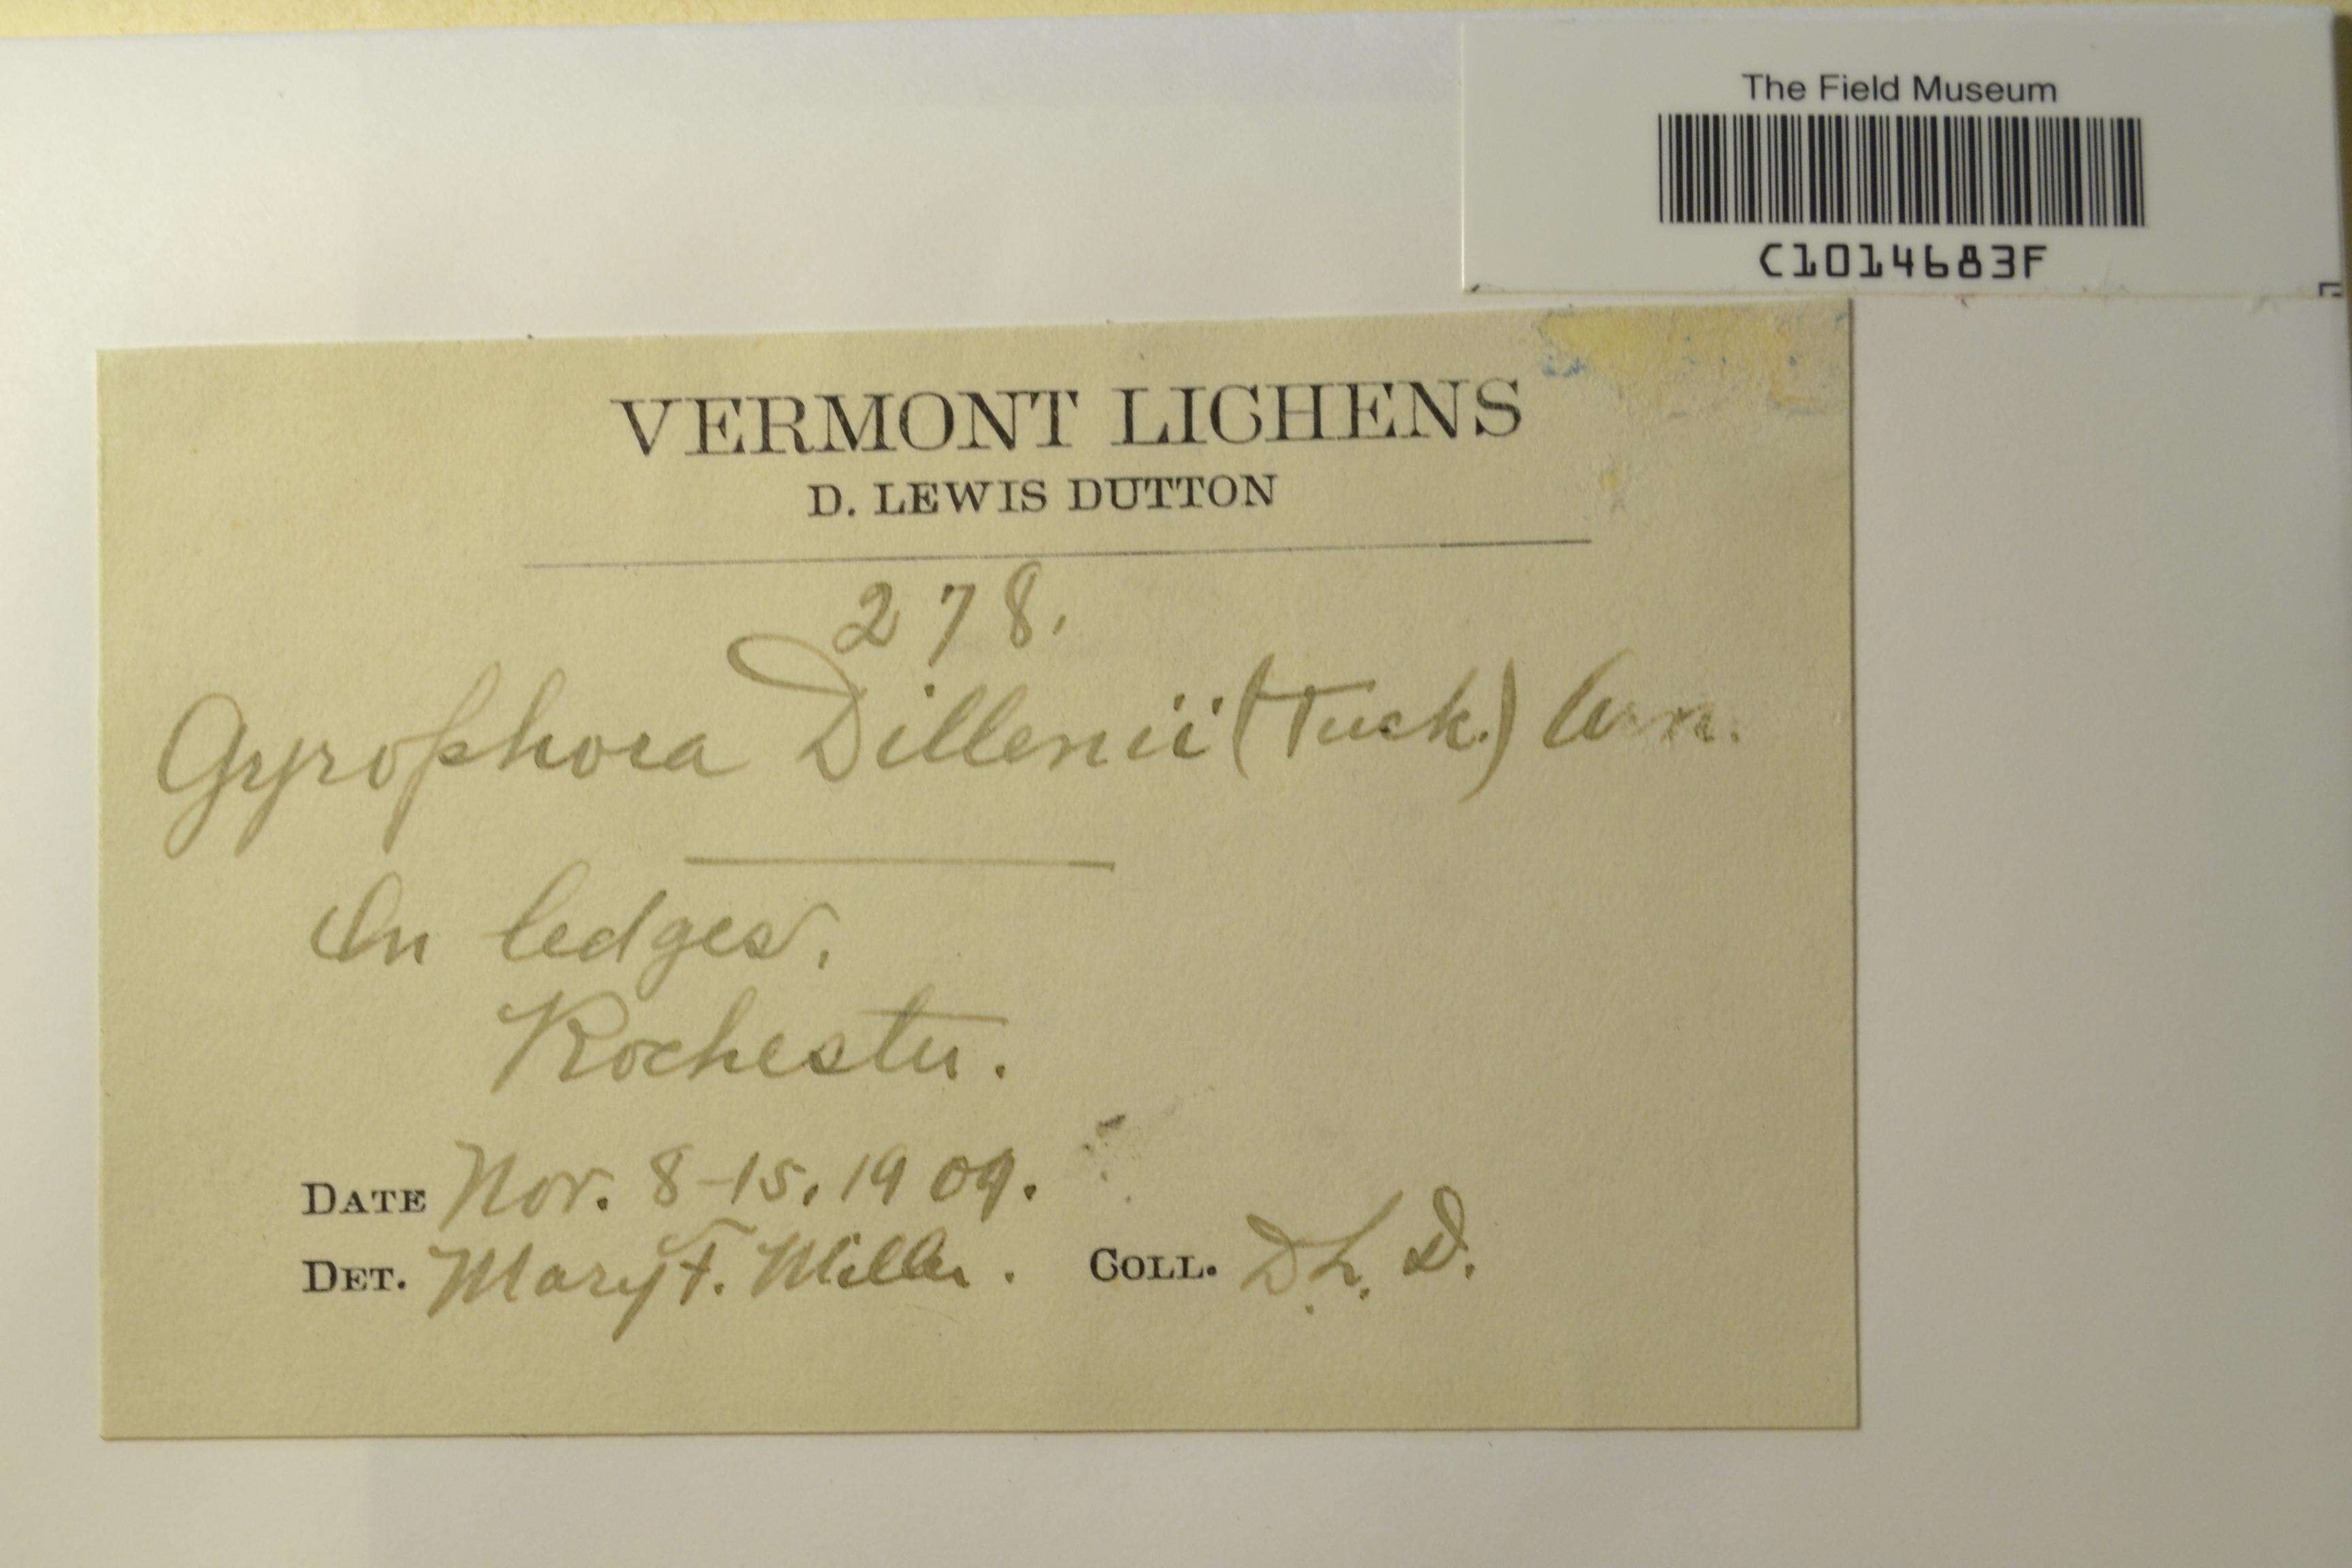 The Field Museum
C1014683F
VERMONT LICHENS
D. LEWIS DUTTON
278.
Gyrophora Dillenii (Tuck.)
On ledges.
Rochester.
DATE Nov. 8-15, 1909.
DET. Mary F. Miller. COLL. D. L. D.